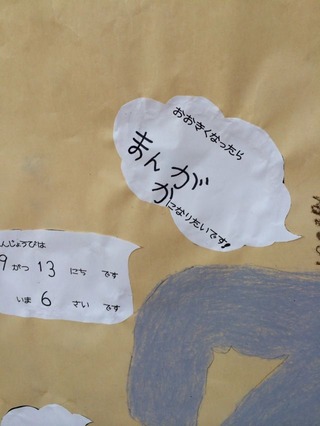 おおきくなったら
まんが
か
になりたいです!
んじょうびは
9 がつ 13 にち です
いま 6 さい です